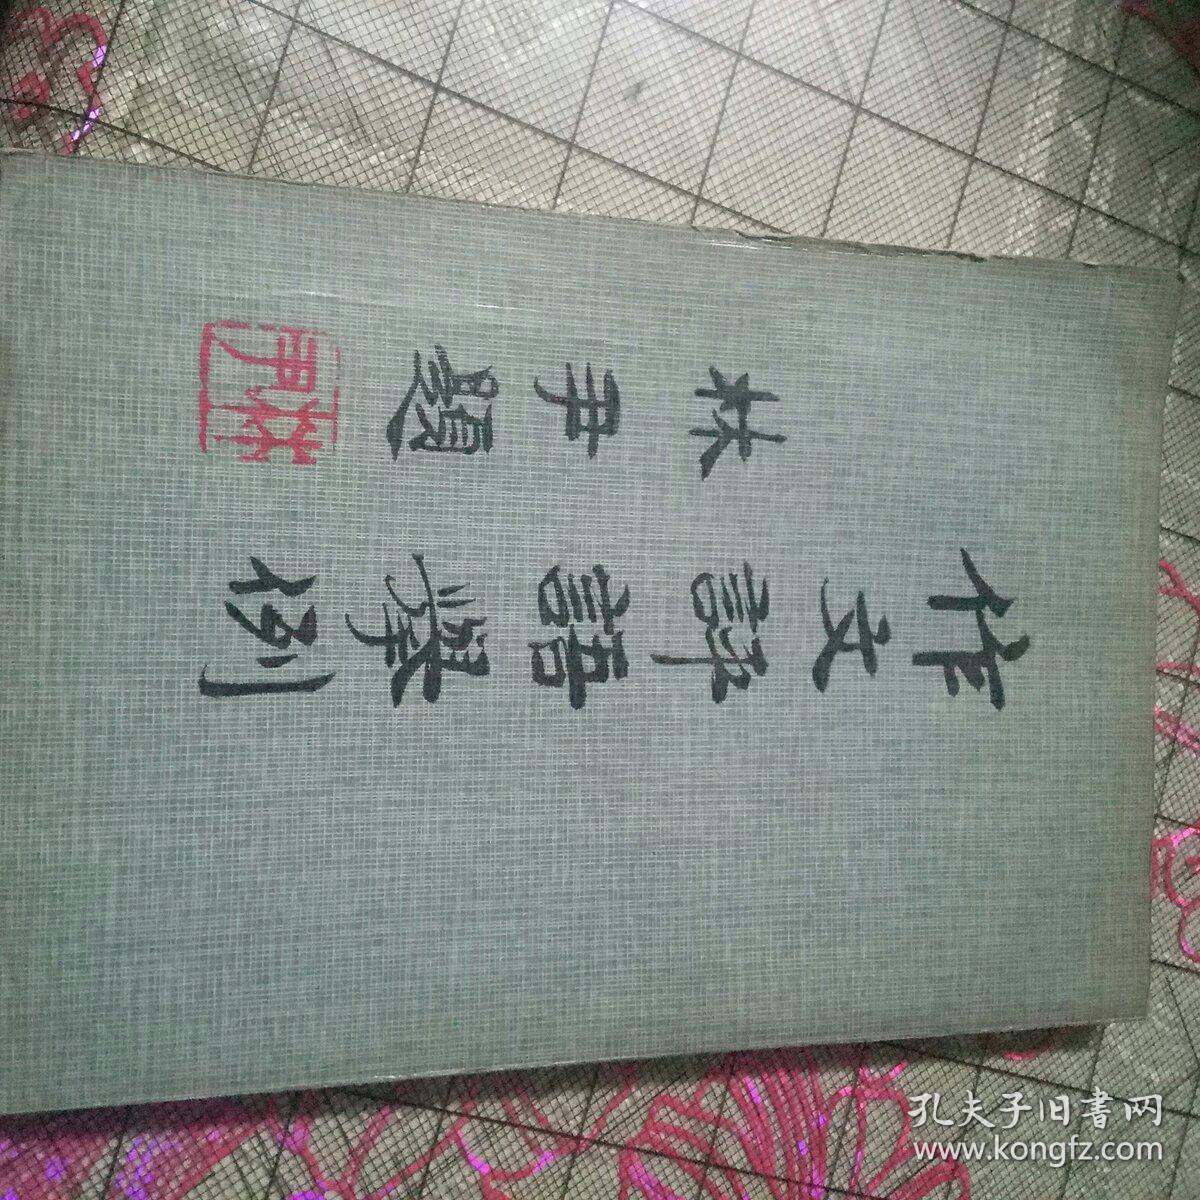 作文評語舉例
林尹題
林尹
孔夫子旧書网
www.kongfz.com